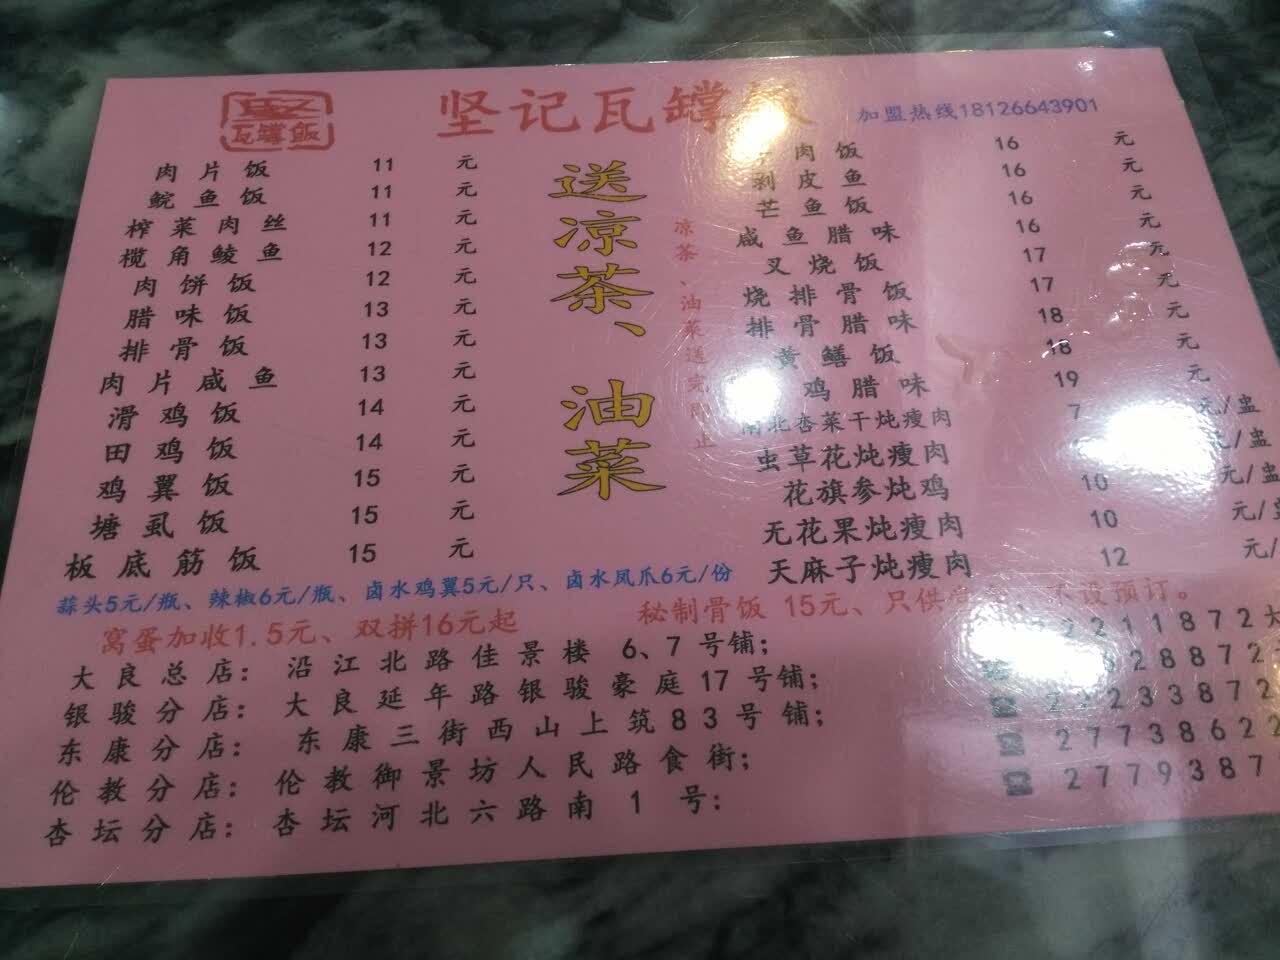 坚
瓦罉飯
坚记瓦罉
加盟热线18126643901
肉片饭 11 元
鲩鱼饭 11 元
榨菜肉丝 11 元
榄角鲮鱼 12 元
肉饼饭 12 元
腊味饭 13 元
排骨饭 13 元
肉片咸鱼 13 元
滑鸡饭 14 元
田鸡饭 14 元
鸡翼饭 15 元
塘虱饭 15 元
板底筋饭 15 元
送凉茶、油菜
凉茶、油菜送完 止
肉饭 16 元
剥皮鱼 16 元
芒鱼饭 16 元
咸鱼腊味 16 元
叉烧饭 17 元
烧排骨饭 17 元
排骨腊味 18 元
黄鳝饭 18 元
鸡腊味 19 元
南北杏菜干炖瘦肉 7 元/盅
虫草花炖瘦肉 元/盅
花旗参炖鸡 10 元/盅
无花果炖瘦肉 10 元/
天麻子炖瘦肉 12 元/
蒜头5元/瓶、辣椒6元/瓶、卤水鸡翼5元/只、卤水凤爪6元/份
窝蛋加收1.5元、双拼16元起
秘制骨饭 15元、只供 不设预订。
大良总店：沿江北路佳景楼 6、7号铺； 2211872
银骏分店：大良延年路银骏豪庭17号铺； 28872
东康分店：东康三街西山上筑83号铺； 2233872
伦教分店：伦教御景坊人民路食街； 27738622
杏坛分店：杏坛河北六路南 1 号： 2779387